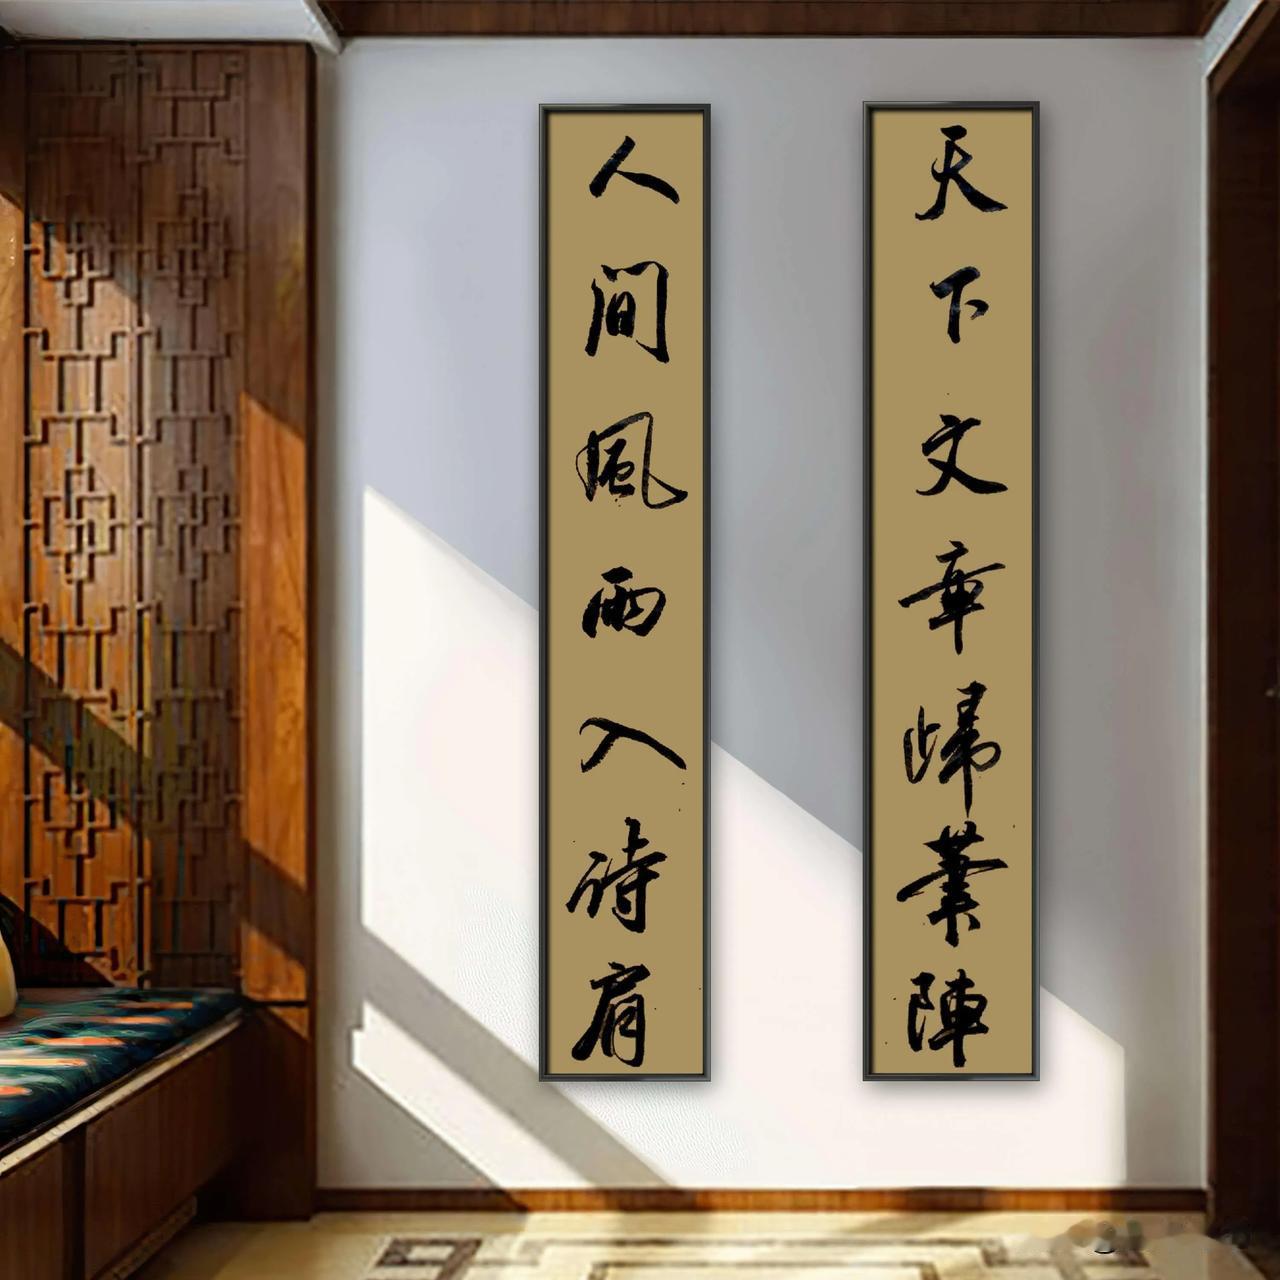 天下文章歸筆陣
人間風雨入詩肩